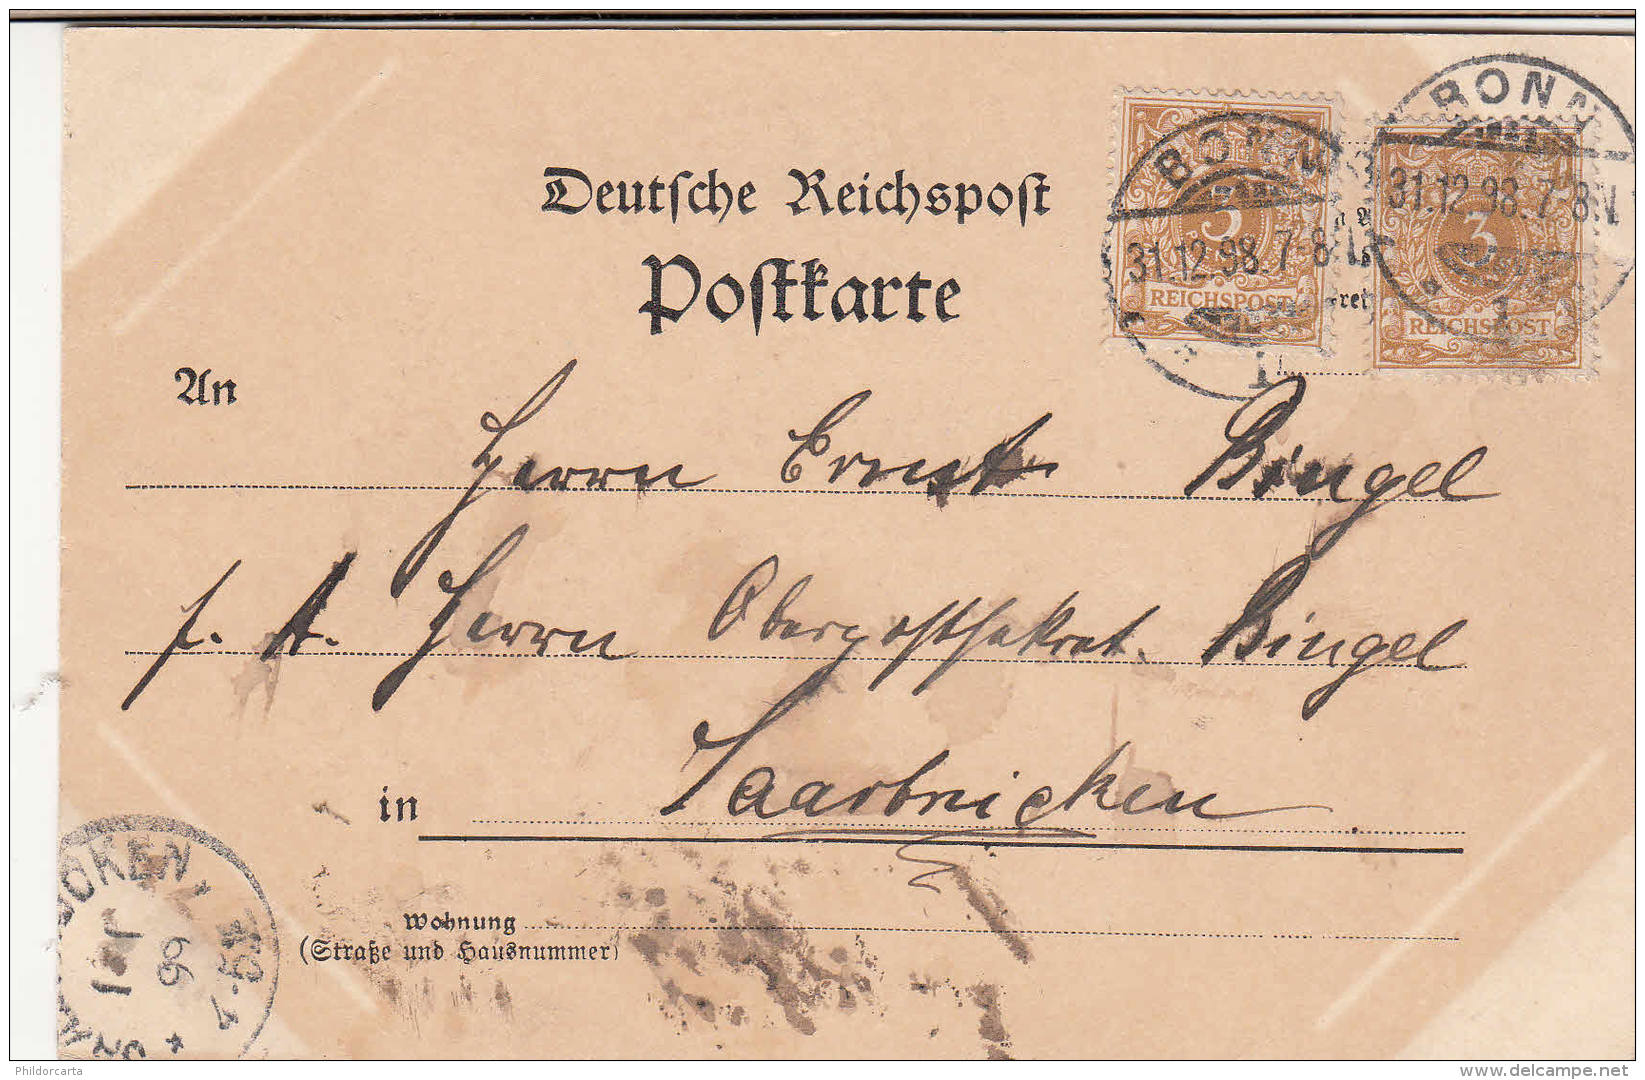 Deutsche Reichspost
Postkarte
BONN
31.12.98.7-8N.
1
3
REICHSPOST
BONN
31.12.98.7-8N
1
3
REICHSPOST
An
Herrn Ernst Bingel
f. A. Herrn Oberpostsekret. Bingel
in Saarbrücken
Wohnung
(Straße und Hausnummer)
1 1
99
Phildorcarta
www.delcampe.net